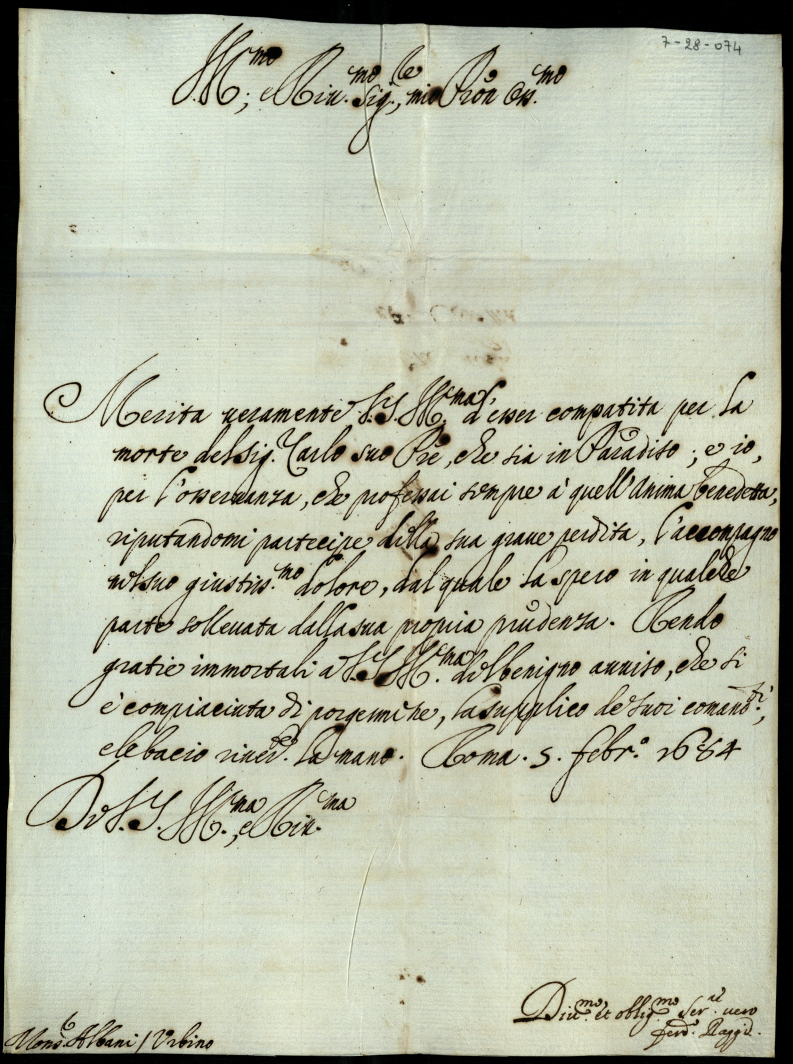 7-28-074
Ill.mo, e Riu.mo Sig.re, mio Pron Oss.mo
Merita ueramente V.S. Ill.ma d'esser compatita per la
morte del Sig.r Carlo suo Pre, che sia in Paradiso; e io,
per l'osseruanza, che professai sempre à quell'Anima benedetta,
riputandomi partecipe della sua graue perdita, l'accompagno
nel suo giustiss.mo dolore, dal quale la spero in qualche
parte solleuata dalla sua propria prudenza. Rendo
gratie immortali a V.S. Ill.ma del benigno auuiso, che si
è compiaciuta di porgermene, la supplico de suoi comand.ti,
e le bacio riuer.te la mano. Roma. 5. Febr.o 1684
Di V.S. Ill.ma, e Riu.ma
Diu.mo, et oblig.mo Ser.re uero
Ferd. Raggi.
Mons.r Albani / Vrbino